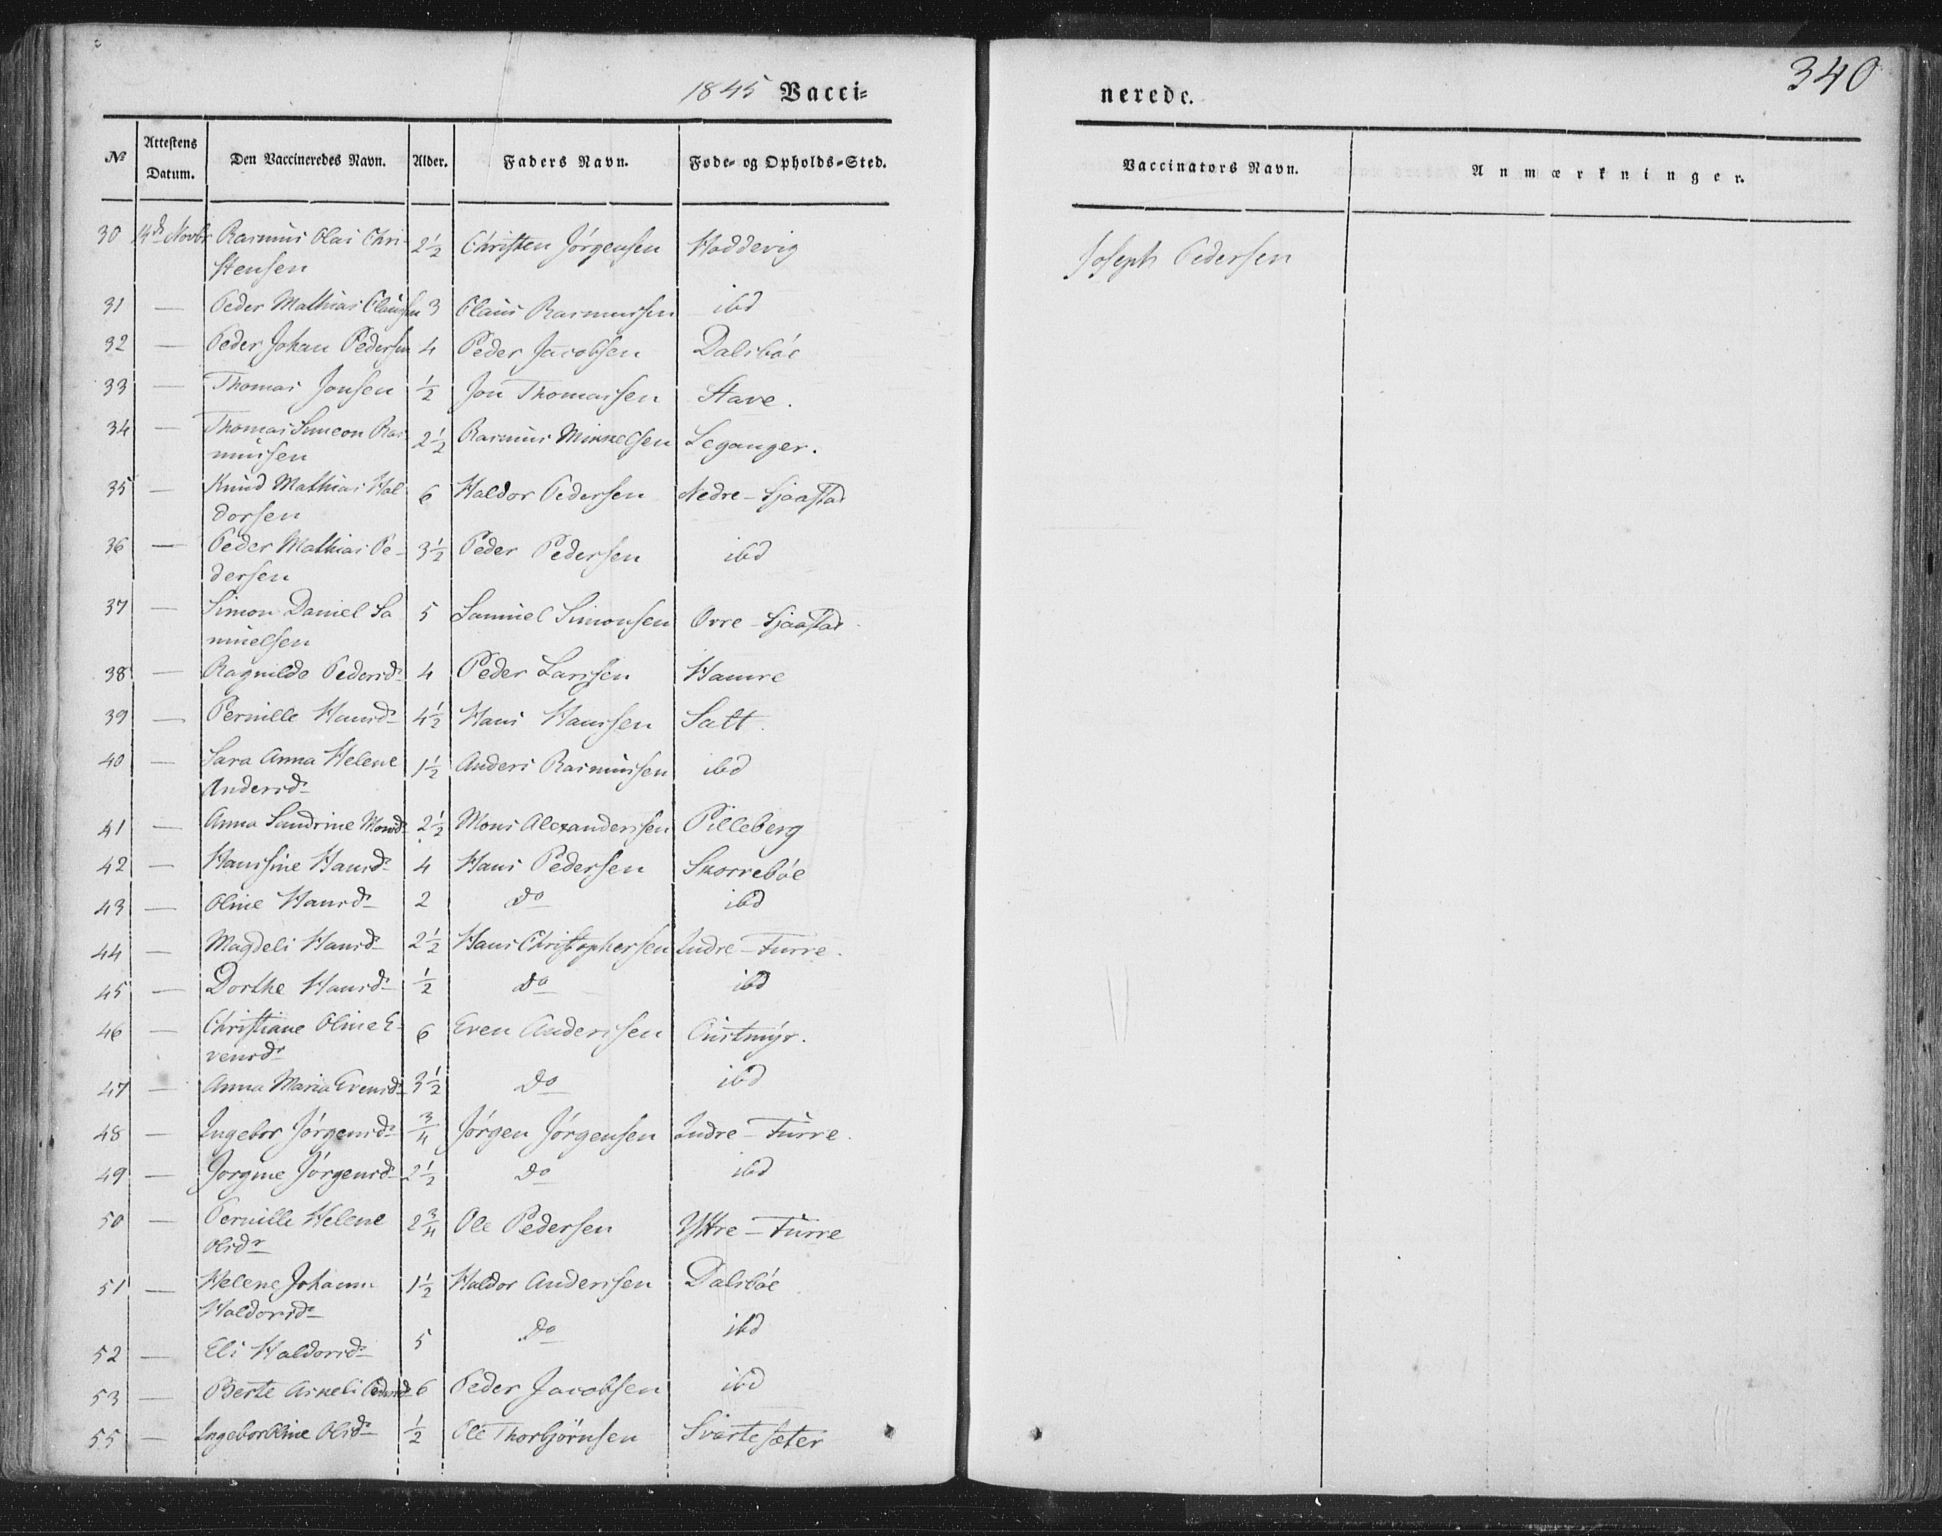 340
1845 Vacci=
nerede.
№ Attestens Datum. Den Vaccineredes Navn. Alder. Faders Navn. Føde- og Opholds-Sted. Vaccinators Navn. Anmærkninger.
30 14de Novbr Rasmus Olai Chri- 2½ Christen Jørgensen Hoddevig Joseph Pedersen
stensen
31 — Peder Mathias Clausen 3 Claus Rasmussen ibd
32 — Peder Johan Pedersen 4 Peder Jacobsen Dalsbøe
33 — Thomas Jonsen ½ Jon Thomassen Stave.
34 — Thomas Simeon Ras- 2½ Rasmus Mikkelsen Leganger.
mussen
35 — Knud Mathias Hal 6 Haldor Pedersen Nedre-Sjaastad
dorsen
36 — Peder Mathias Pe- 3½ Peder Pedersen ibd
dersen
37 — Simon Daniel Sa 5 Samuel Simonsen Ovre-Sjaastad
muelsen
38 — Ragnilde Pedersdr 4 Peder Larssen Hamre
39 — Pernille Hansdr 4½ Hans Hanssen Satt.
40 — Sara Anna Helene 1½ Anders Rasmussen ibd
Andersdr
41 — Anna Sandrine Monsdr 2½ Mons Alexandersen Pilleberg
42 — Hanssine Hansdr 4 Hans Pedersen Skorrebøe
43 — Oline Hansdr 2 do ibd
44 — Magdeli Hansdr 2½ Hans Christophersen Indre-Furre.
45 — Dorthe Hansdr ½ do ibd
46 — Christiane Oline E- 6 Even Anderssen Oustmyr.
vensdr
47 — Anna Maria Evensdr 3½ do ibd
48 — Ingebor Jørgensdr ¾ Jørgen Jørgensen Indre-Furre.
49 — Jorgine Jørgensdr 2½ do ibd
50 — Pernille Helene 2¾ Ole Pedersen Yttre-Furre
Olsdr
51 — Helene Johanne 1½ Haldor Anderssen Dalsbøe
Haldorsdr
52 — Eli Haldorsdr 5 do ibd
53 — Berte Askeli Pedersdr 6 Peder Jacobsen ibd
55 — Ingebor Oline Olsdr ½ Ole Thorbjørnsen Svartesæter